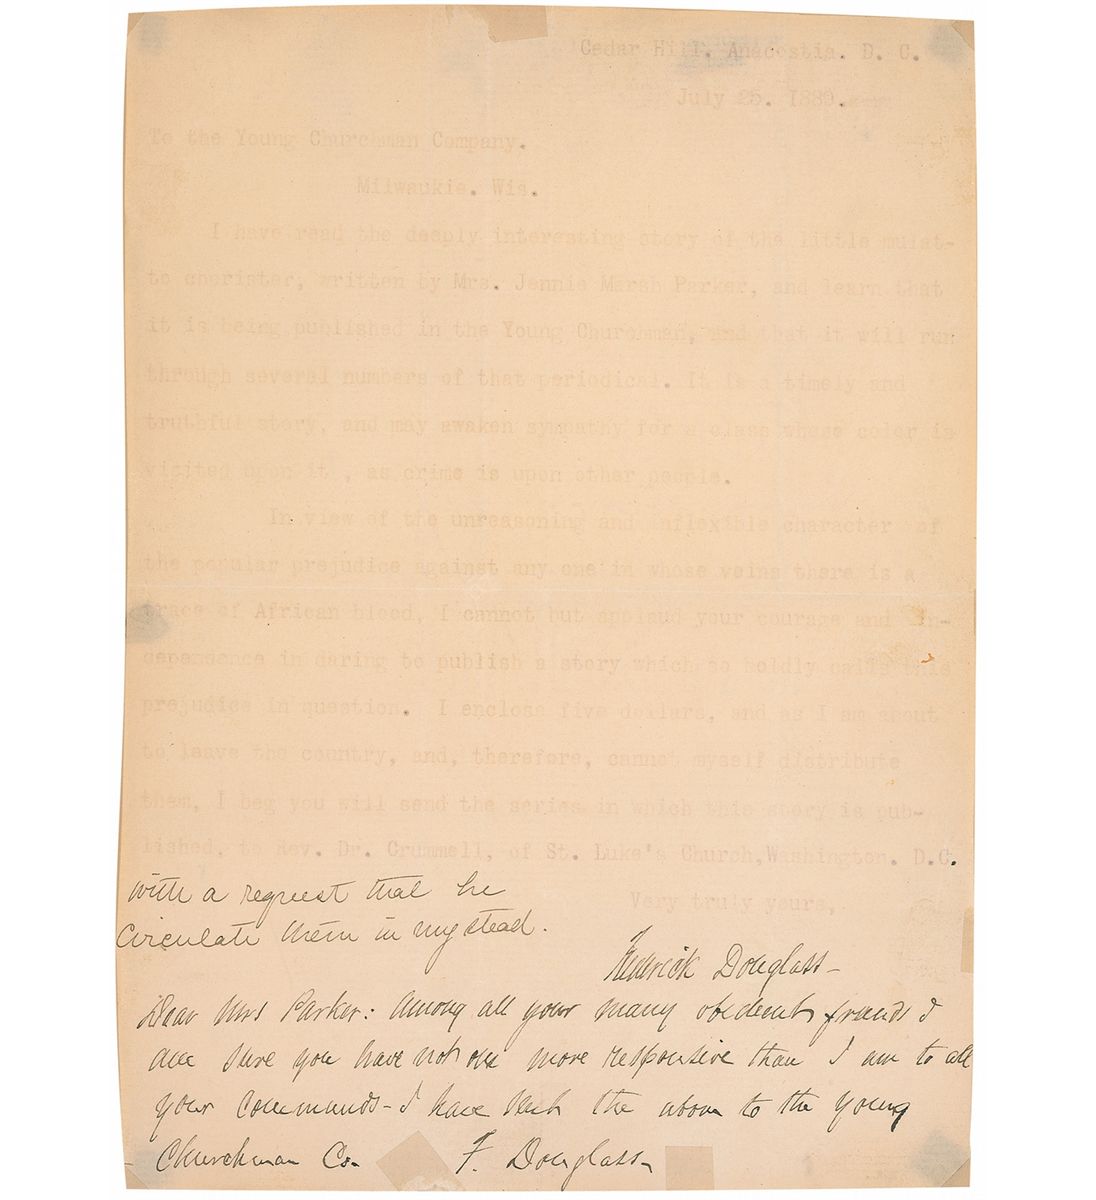 Cedar Hill. Anacostia. D. C.
July 25. 1889.
To the Young Churchman Company.
Milwaukie. Wis.
I have read the deeply interesting story of the little mulat-
to chorister, written by Mrs. Jennie Marsh Parker, and learn that
it is being published in the Young Churchman, and that it will run
through several numbers of that periodical. It is a timely and
truthful story, and may awaken sympathy for a class whose color is
visited upon it , as crime is upon other people.
In view of the unreasoning and inflexible character of
the popular prejudice against any one in whose veins there is a
trace of African blood, I cannot but applaud your courage and in-
dependence in daring to publish a story which so boldly calls this
prejudice in question. I enclose five dollars, and as I am about
to leave the country, and, therefore, cannot myself distribute
them, I beg you will send the series in which this story is pub-
lished, to Rev. Dr. Crummell, of St. Luke's Church,Washington. D.C.
with a request that he
circulate them in my stead.
Very truly yours,
Frederick Douglass-
Dear Mrs Parker: Among all your many obedient friends I
am sure you have not one more responsive than I am to all
your commands- I have sent the above to the young
Churchman Co- F. Douglass-